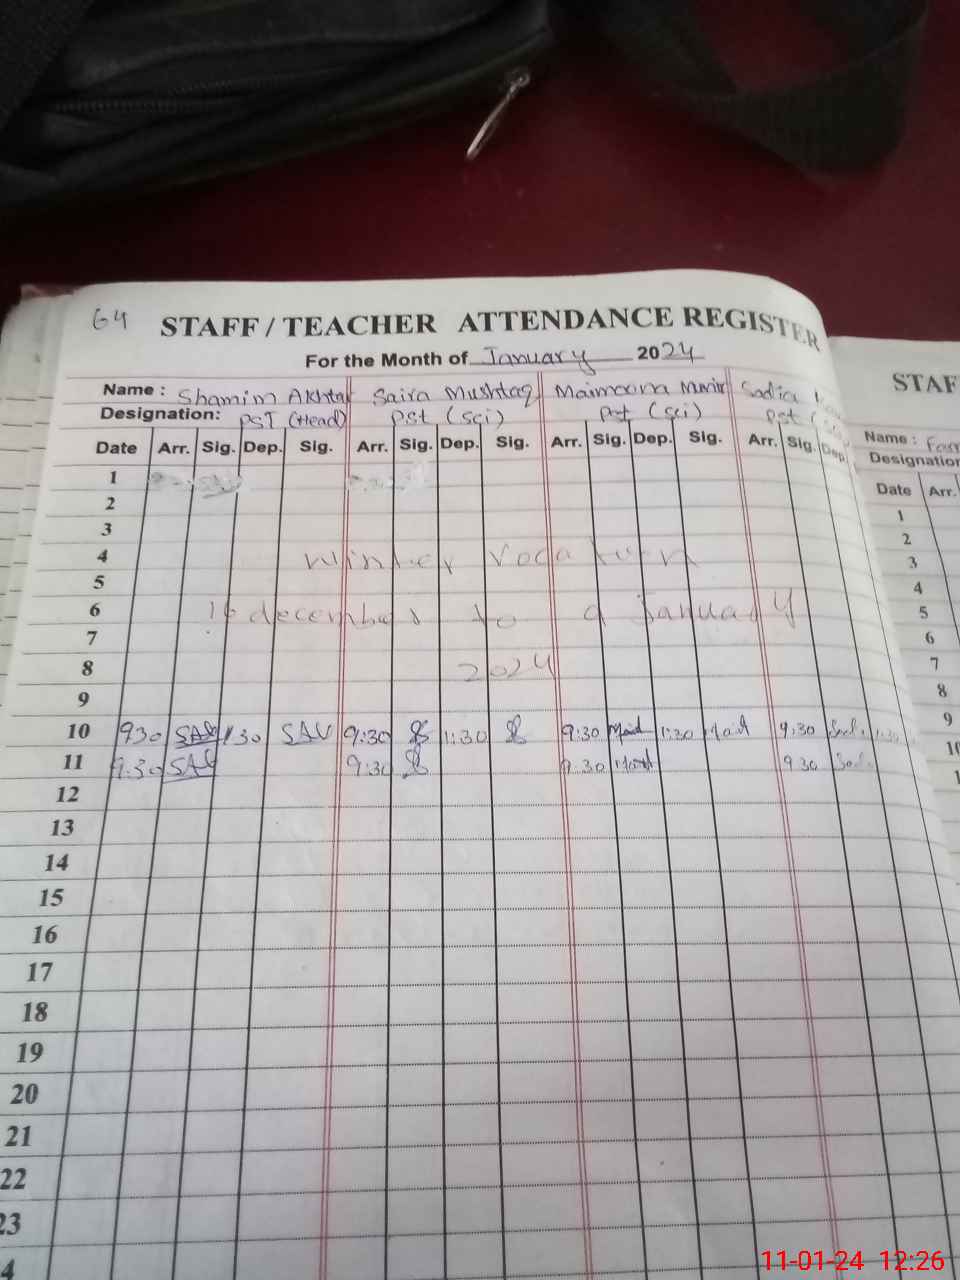 64
STAFF / TEACHER ATTENDANCE REGISTER
For the Month of January 2024
Name : Shamim Akhtar Saira Mushtaq Maimoona Munir Sadia
Designation: PST (Head) PSt (Sci) Pst (Sci) pst (
Date Arr. Sig. Dep. Sig. Arr. Sig. Dep. Sig. Arr. Sig. Dep. Sig. Arr. Sig. Dep.
1
2
3
4 Winter Vocation
5
6 16 december to 9 January
7
8 2024
9
10 930 130 9:30 1:30 9:30 1:30 9:30
11 9:30 9:30 9:30 930
12
13
14
15
16
17
18
19
20
21
22
23
4
STAF
Name :
Designation
Date Arr.
1
2
3
4
5
6
7
8
9
10
1
11-01-24 12:26